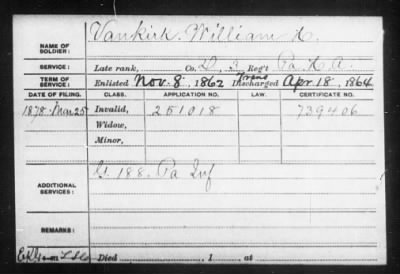 NAME OF SOLDIER: Vankirk, William H.
SERVICE: Late rank, Co. D, 3 Reg't Pa. H. A.
TERM OF SERVICE: Enlisted Nov. 8, 1862 Trans Discharged Apr 18, 1864
DATE OF FILING. CLASS. APPLICATION NO. LAW. CERTIFICATE NO.
1878 Mar 25 Invalid, 251018 739406
Widow,
Minor,
ADDITIONAL SERVICES: G. 188. Pa Inf
REMARKS:
Died , 1 , at